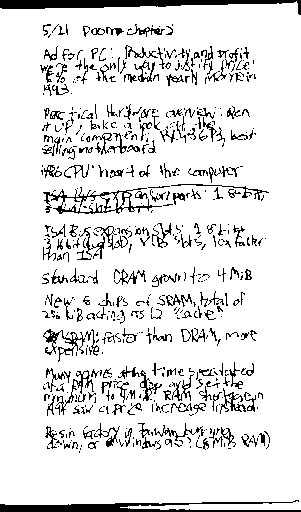 5/21 Doom chapter 2
Ad for PC: Productivity and profit
were the only way to justify price:
of the median yearly income in
1993.
Practical hardware overview: Open
it up, take a look at the
main components, best
selling motherboard
CPU: heart of the computer
ISA Bus expansion ports: 1 8-bit,
ISA Bus expansion slots: 1 8-bit
VLB slots, 10x faster
than ISA
Standard DRAM grown to 4 MiB
New 8 chips of SRAM, total of
256 KiB acting as L2 "cache"
SRAM: faster than DRAM, more
expensive.
Many games at the time speculated
at a RAM price drop and set the
minimum to 4 MiB. RAM shortage in
saw a price increase instead.
Resin factory in Taiwan burning
down, or Windows 95? (8 MiB RAM)